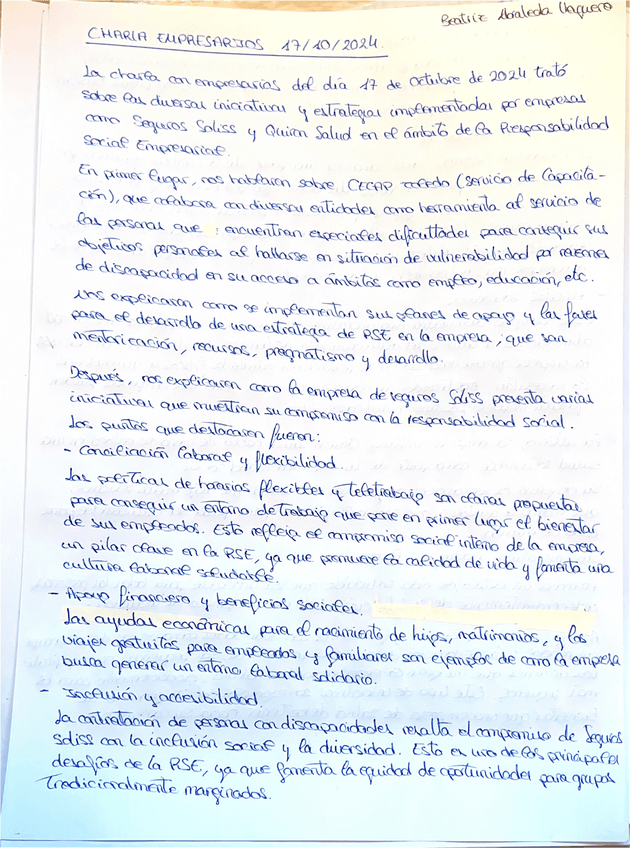 Beatriz Abraleda Vaquero
CHARLA EMPRESARIOS 17/10/2024.
La charla con empresarios del día 17 de octubre de 2024 trató
sobre las diversas iniciativas y estrategias implementadas por empresas
como Seguros Soliss y Quirón Salud en el ámbito de la Responsabilidad
Social Empresarial.
En primer lugar, nos hablaron sobre CECAP Toledo (Servicio de Capacita-
ción), que colabora con diversas entidades como herramienta al servicio de
las personas que encuentran especiales dificultades para conseguir sus
objetivos personales al hallarse en situación de vulnerabilidad por razones
de discapacidad en su acceso a ámbitos como empleo, educación, etc.
Nos explicaron como se implementan sus planes de apoyo y las fases
para el desarrollo de una estrategia de RSE en la empresa, que son
mentorización, recursos, pragmatismo y desarrollo.
Después, nos explicaron como la empresa de seguros Soliss presenta varias
iniciativas que muestran su compromiso con la responsabilidad social.
Los puntos que destacaron fueron:
- Conciliación laboral y flexibilidad.
Las políticas de horarios flexibles y teletrabajo son claras propuestas
para conseguir un entorno de trabajo que pone en primer lugar el bienestar
de sus empleados. Esto refleja el compromiso social interno de la empresa,
un pilar clave en la RSE, ya que promueve la calidad de vida y fomenta una
cultura laboral saludable.
- Apoyo financiero y beneficios sociales.
Las ayudas económicas para el nacimiento de hijos, matrimonios, y los
viajes gratuitos para empleados y familiares son ejemplos de como la empresa
busca generar un entorno laboral solidario.
- Inclusión y accesibilidad.
La contratación de personas con discapacidades resalta el compromiso de Seguros
Soliss con la inclusión social y la diversidad. Esto es uno de los principales
desafíos de la RSE, ya que fomenta la equidad de oportunidades para grupos
tradicionalmente marginados.